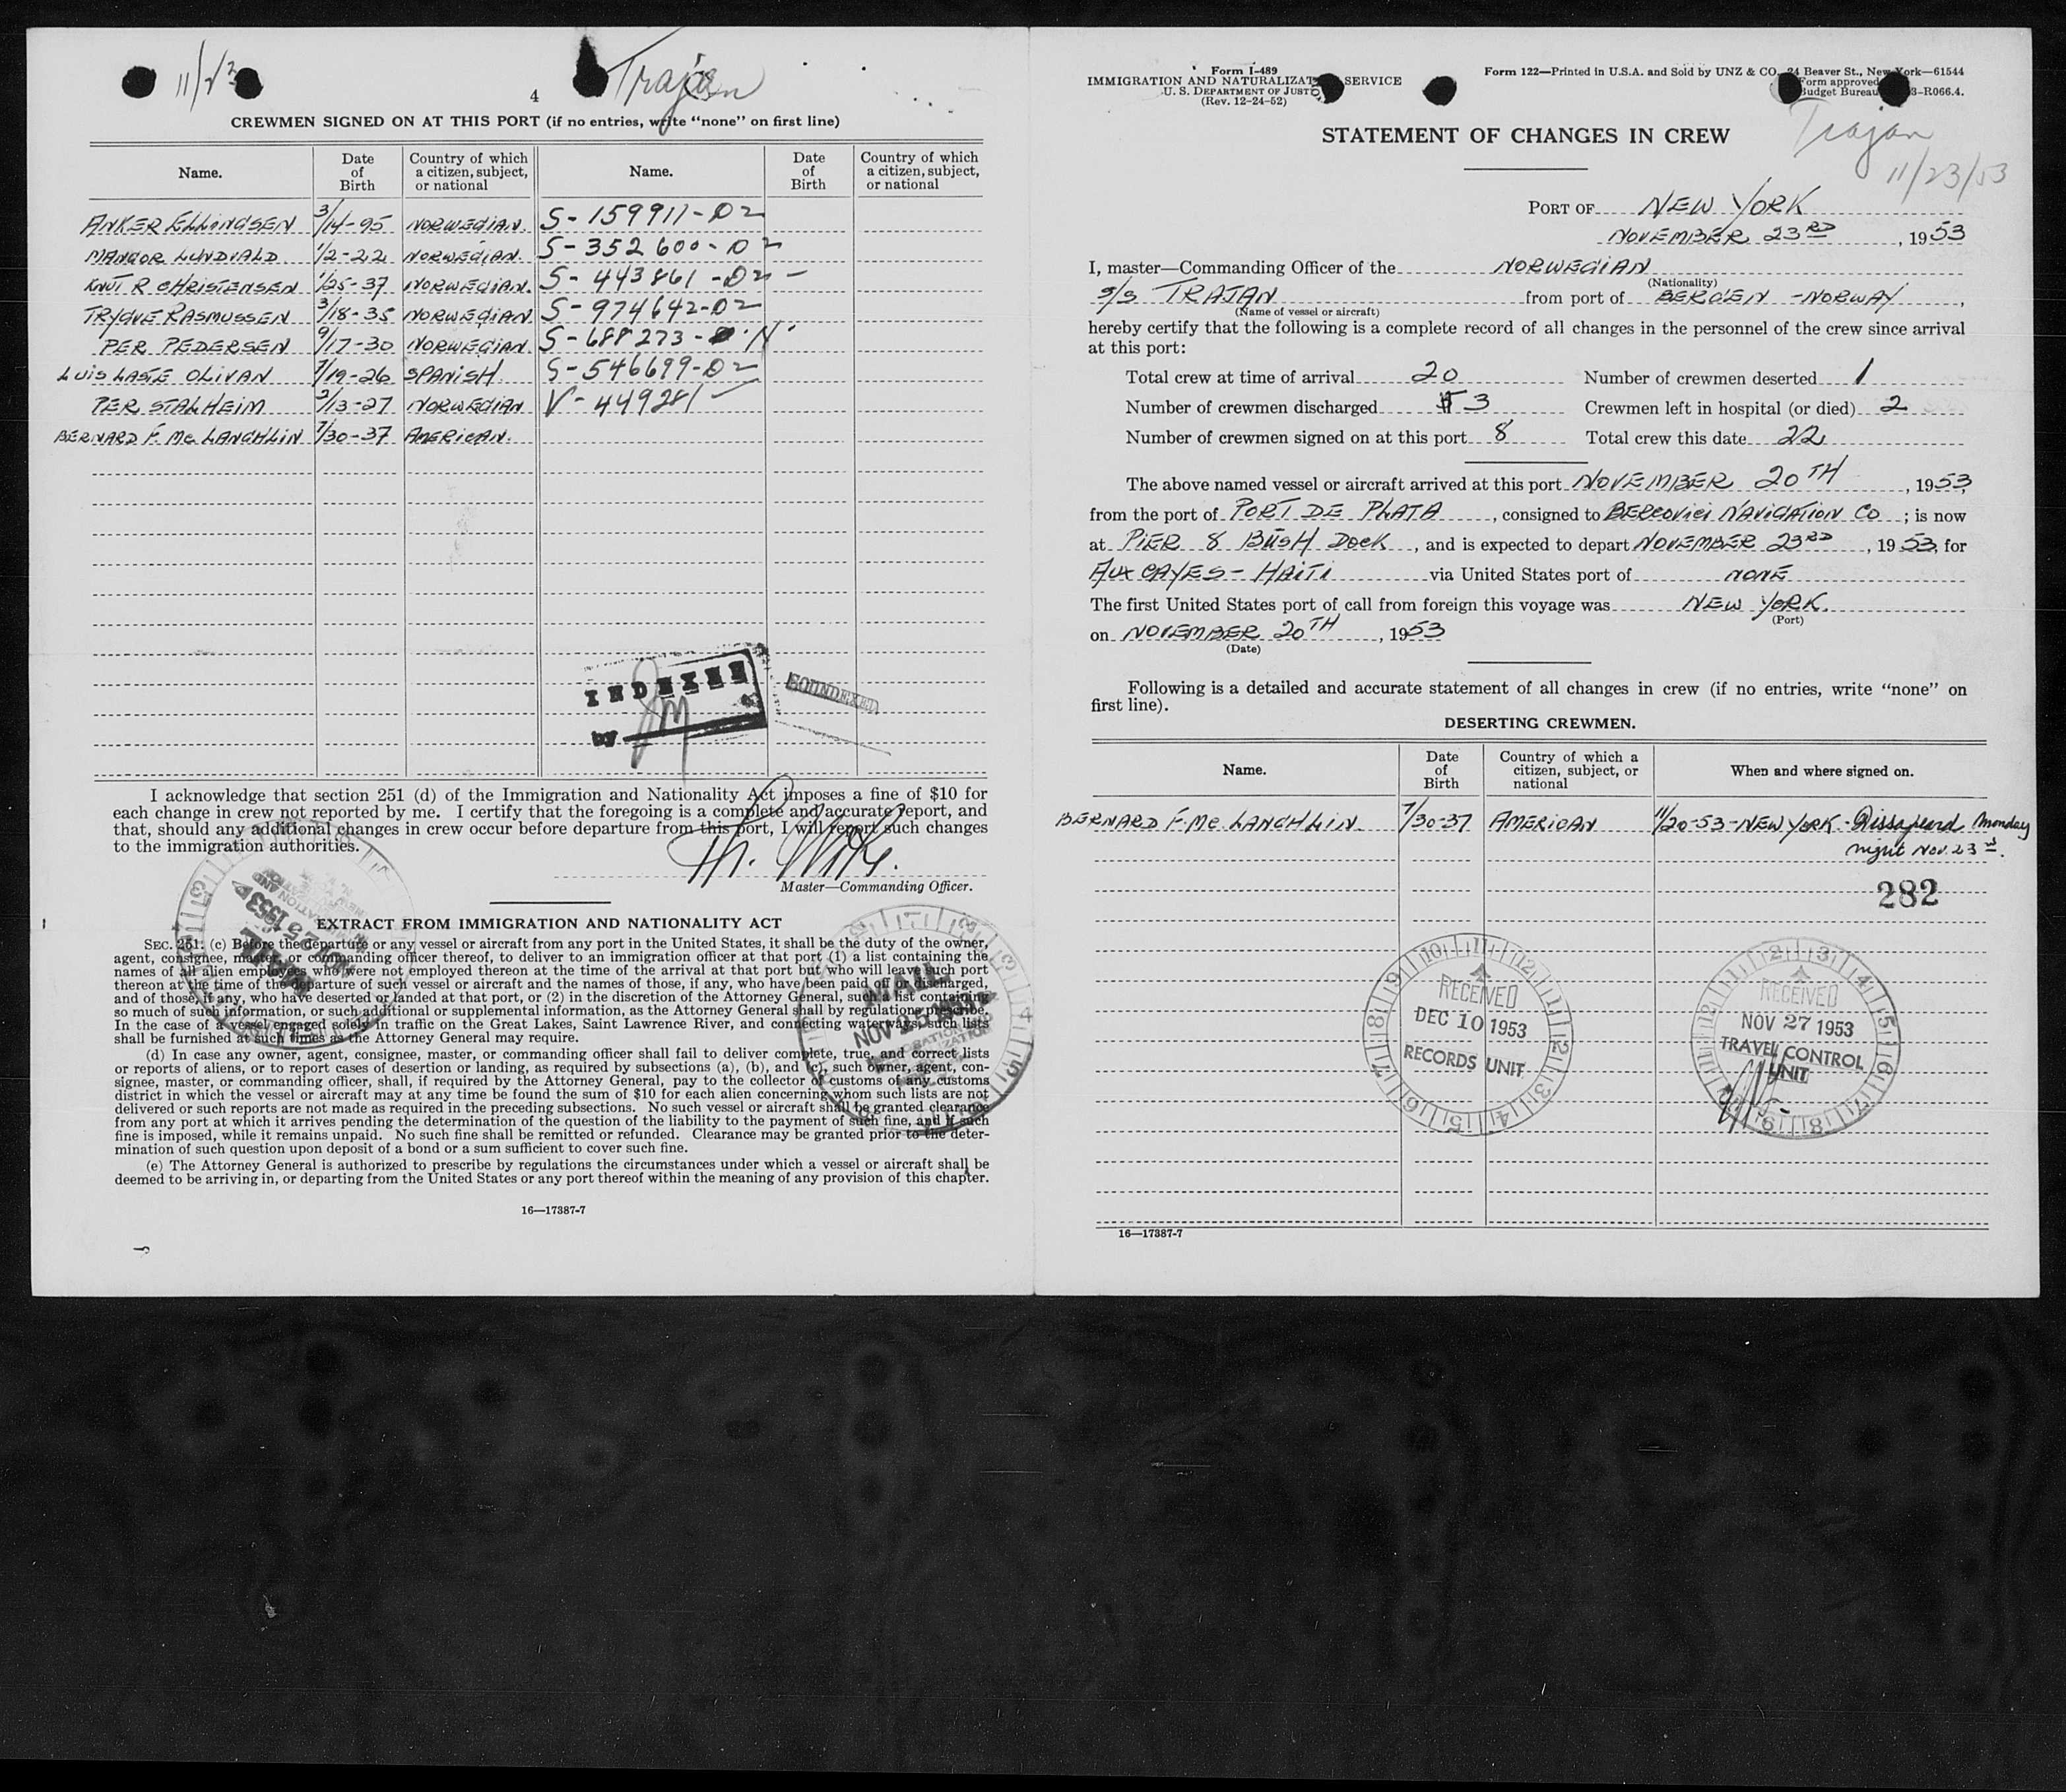 11/23
Trajan
4
CREWMEN SIGNED ON AT THIS PORT (if no entries, write “none” on first line)
Name. Date of Birth Country of which a citizen, subject, or national Name. Date of Birth Country of which a citizen, subject, or national
ANKER ELLINGSEN 3/14-95 NORWEGIAN. S-159911-D2
MANGOR LUNDVALD 1/2-22 NORWEGIAN. S-352600-D2
KNUT R CHRISTENSEN 1/25-37 NORWEGIAN. S-443861-D2 -
TRYGVE RASMUSSEN 3/18-35 NORWEGIAN S-974642-D2
PER PEDERSEN 9/17-30 NORWEGIAN. S-688273- N
LUIS LASTE OLIVAN 7/19-26 SPANISH. S-546699-D2
PER STALHEIM 3/13-27 NORWEGIAN V-449281 -
BERNARD F. Mc LANCHLIN 7/30-37 AMERICAN.
INDEXED
by
I acknowledge that section 251 (d) of the Immigration and Nationality Act imposes a fine of $10 for
each change in crew not reported by me. I certify that the foregoing is a complete and accurate report, and
that, should any additional changes in crew occur before departure from this port, I will report such changes
to the immigration authorities.
Master—Commanding Officer.
EXTRACT FROM IMMIGRATION AND NATIONALITY ACT
SEC. 251. (c) Before the departure or any vessel or aircraft from any port in the United States, it shall be the duty of the owner,
agent, consignee, master, or commanding officer thereof, to deliver to an immigration officer at that port (1) a list containing the
names of all alien employees who were not employed thereon at the time of the arrival at that port but who will leave such port
thereon at the time of the departure of such vessel or aircraft and the names of those, if any, who have been paid off or discharged,
and of those, if any, who have deserted or landed at that port, or (2) in the discretion of the Attorney General, such a list containing
so much of such information, or such additional or supplemental information, as the Attorney General shall by regulations prescribe.
In the case of a vessel engaged solely in traffic on the Great Lakes, Saint Lawrence River, and connecting waterways, such lists
shall be furnished at such times as the Attorney General may require.
(d) In case any owner, agent, consignee, master, or commanding officer shall fail to deliver complete, true, and correct lists
or reports of aliens, or to report cases of desertion or landing, as required by subsections (a), (b), and (c), such owner, agent, con-
signee, master, or commanding officer, shall, if required by the Attorney General, pay to the collector of customs of any customs
district in which the vessel or aircraft may at any time be found the sum of $10 for each alien concerning whom such lists are not
delivered or such reports are not made as required in the preceding subsections. No such vessel or aircraft shall be granted clearance
from any port at which it arrives pending the determination of the question of the liability to the payment of such fine, and if such
fine is imposed, while it remains unpaid. No such fine shall be remitted or refunded. Clearance may be granted prior to the deter-
mination of such question upon deposit of a bond or a sum sufficient to cover such fine.
(e) The Attorney General is authorized to prescribe by regulations the circumstances under which a vessel or aircraft shall be
deemed to be arriving in, or departing from the United States or any port thereof within the meaning of any provision of this chapter.
MAIL
NOV 25 1953
MAIL
NOV 25 1953
16—17387-7
Form I-489
IMMIGRATION AND NATURALIZATION SERVICE
U. S. DEPARTMENT OF JUSTICE
(Rev. 12-24-52)
Form 122—Printed in U.S.A. and Sold by UNZ & CO. 24 Beaver St., New York—61544
Form approved
Budget Bureau 3-R066.4.
STATEMENT OF CHANGES IN CREW
Trajan
11/23/53
PORT OF NEW YORK
NOVEMBER 23RD, 1953
I, master—Commanding Officer of the NORWEGIAN
(Nationality)
S/S TRAJAN from port of BERGEN - NORWAY,
(Name of vessel or aircraft)
hereby certify that the following is a complete record of all changes in the personnel of the crew since arrival
at this port:
Total crew at time of arrival 20 Number of crewmen deserted 1
Number of crewmen discharged 3 Crewmen left in hospital (or died) 2
Number of crewmen signed on at this port 8 Total crew this date 22
The above named vessel or aircraft arrived at this port NOVEMBER 20TH, 1953,
from the port of PORT DE PLATA, consigned to BERCOVICI NAVIGATION CO; is now
at PIER 8 BUSH DOCK, and is expected to depart NOVEMBER 23RD, 1953, for
AUX CAYES - HAITI via United States port of NONE
The first United States port of call from foreign this voyage was NEW YORK.
(Port)
on NOVEMBER 20TH, 1953
(Date)
Following is a detailed and accurate statement of all changes in crew (if no entries, write “none” on
first line).
DESERTING CREWMEN.
Name. Date of Birth Country of which a citizen, subject, or national When and where signed on.
BERNARD F. Mc LANCHLIN. 7/30-37 AMERICAN 11/20-53-NEW YORK - Dissapeard Monday
night Nov. 23rd.
282
RECEIVED
DEC 10 1953
RECORDS UNIT
RECEIVED
NOV 27 1953
TRAVEL CONTROL
UNIT
16—17387-7